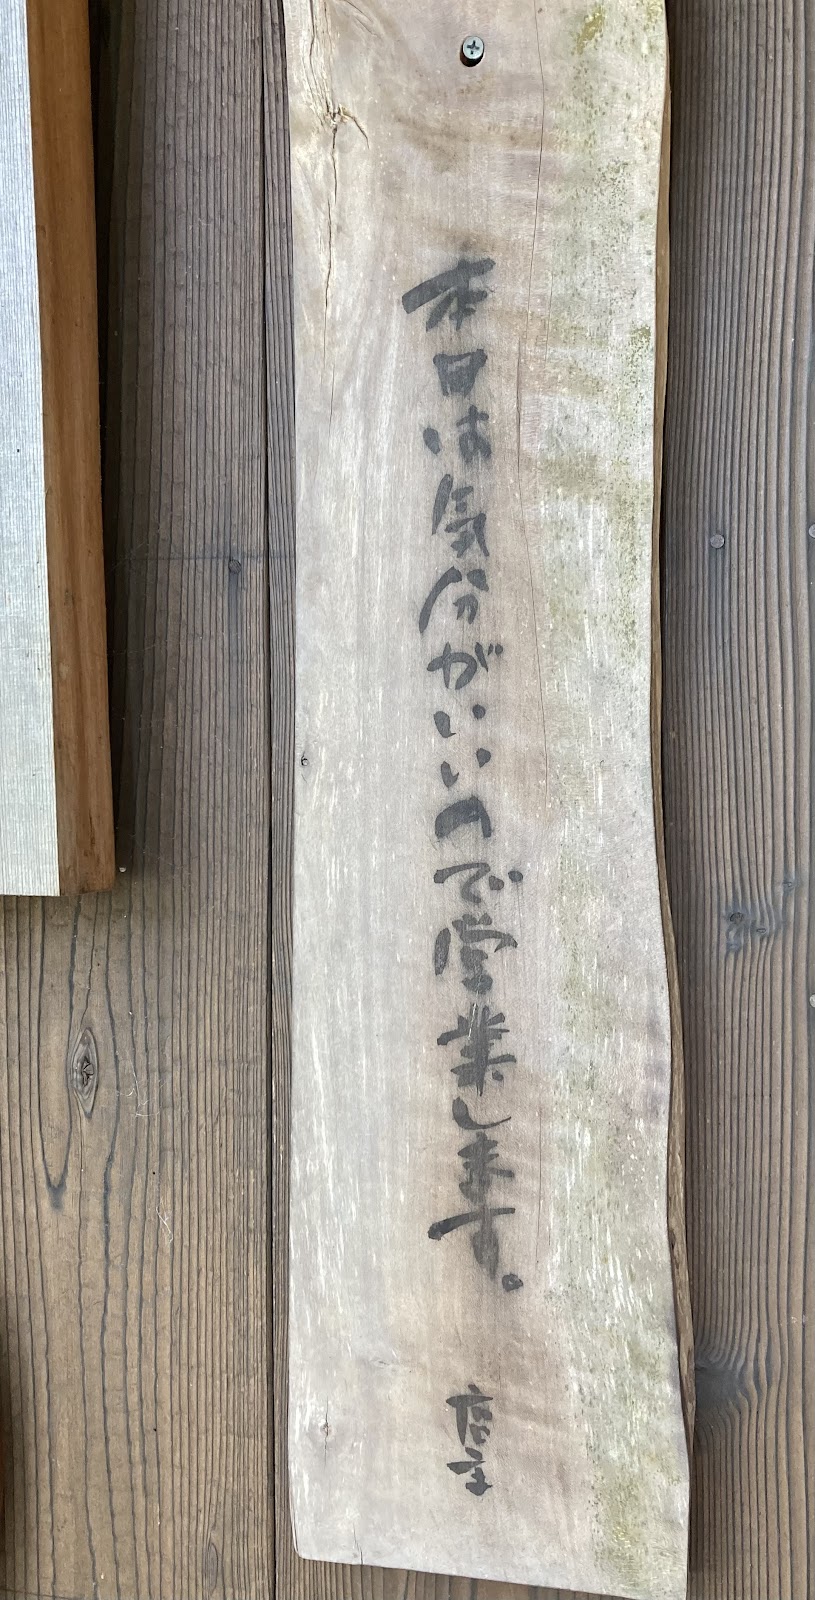 本日は気分がいいので営業します。
店主